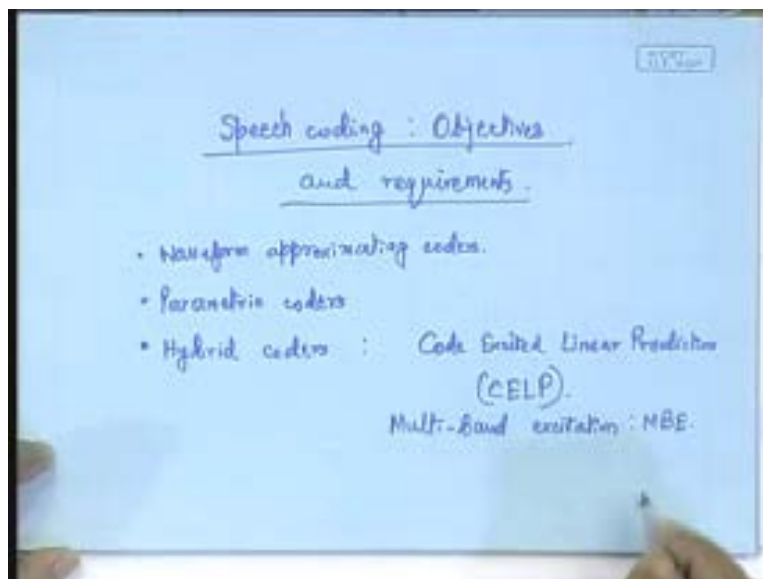 Speech coding : Objectives
and requirements.
• Waveform approximating coders.
• Parametric coders
• Hybrid coders : Code Excited Linear Prediction
(CELP).
Multi-Band excitation : MBE.